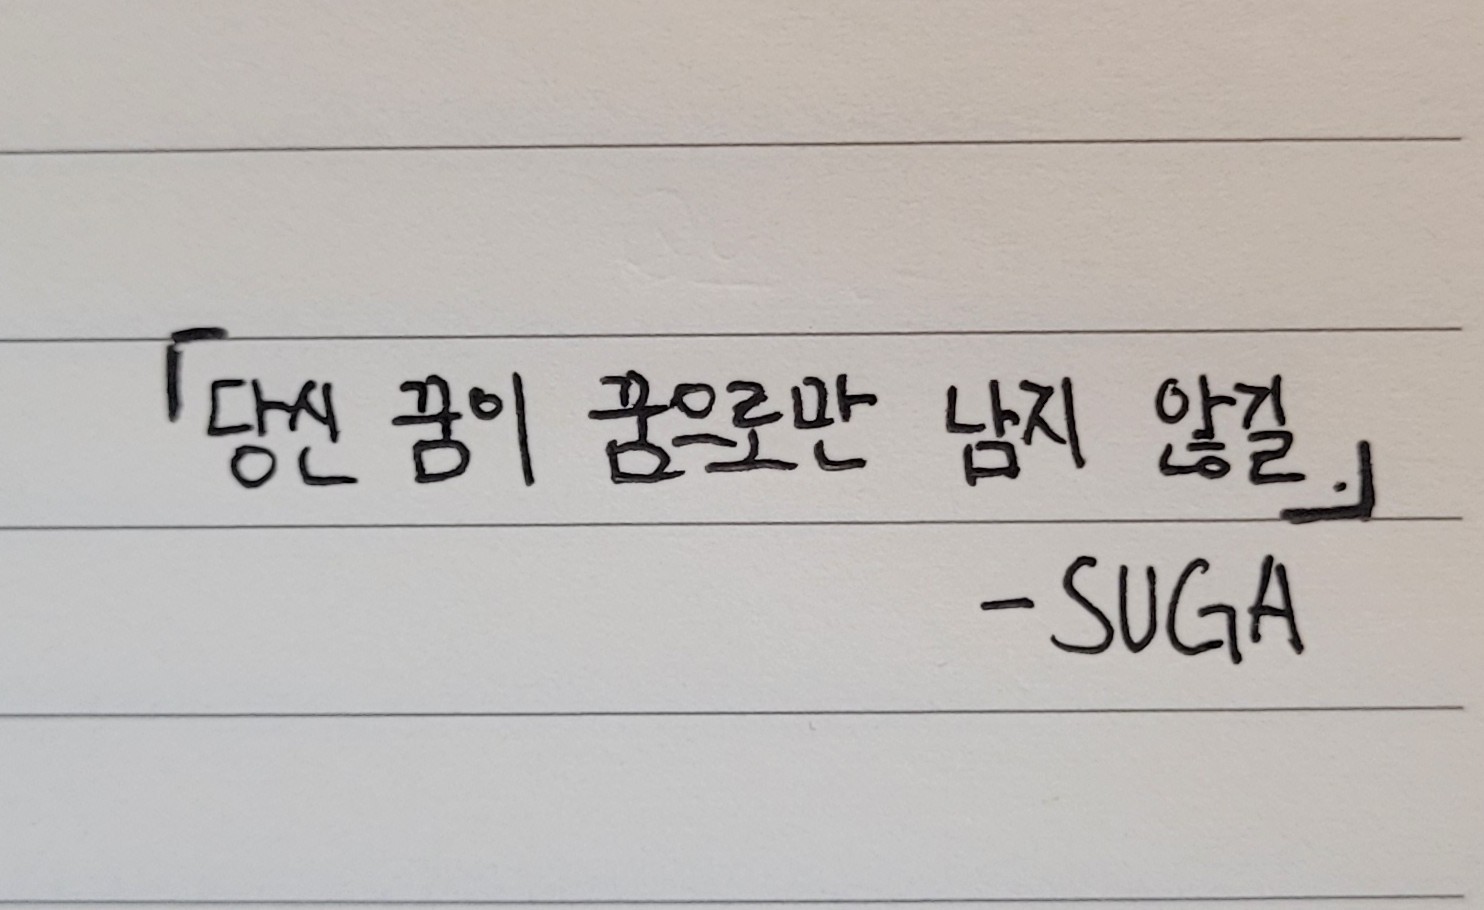 「당신 꿈이 꿈으로만 남지 않길.」
-SUGA